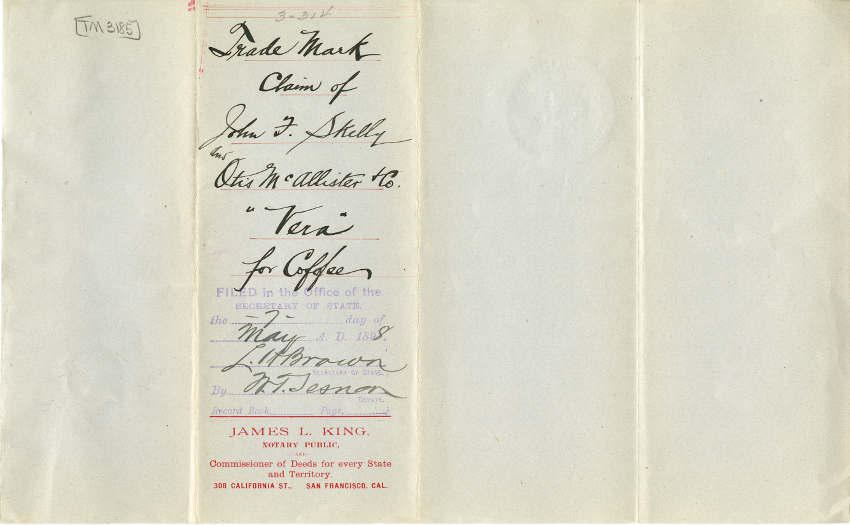 TM 3185
3-314
Trade Mark
Claim of
John F. Skelly
and
Otis McAllister & Co.
"Vera"
for Coffee
FILED in the Office of the
SECRETARY OF STATE,
the 7 day of
May A. D. 1898
L. H. Brown
SECRETARY OF STATE.
By W. T. Sesnon
DEPUTY.
Record Book Page,
JAMES L. KING,
NOTARY PUBLIC,
AND
Commissioner of Deeds for every State
and Territory.
308 CALIFORNIA ST., SAN FRANCISCO, CAL.